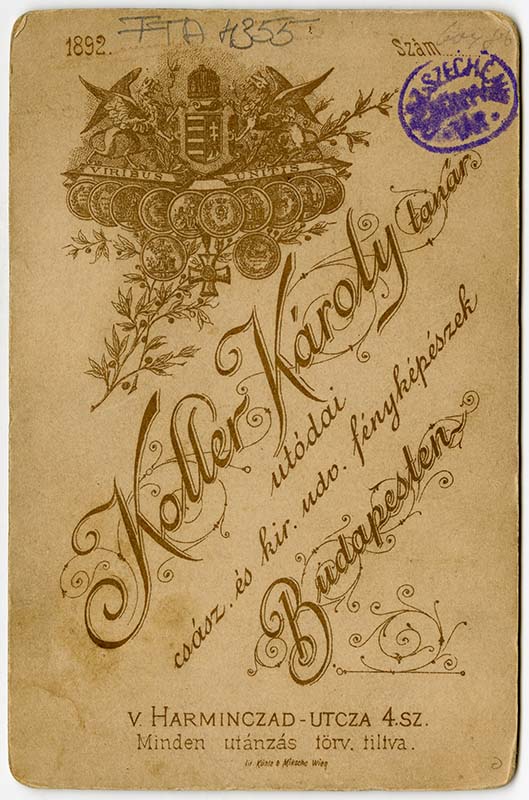 1892. FTA 4355 Szám
SZÉCHÉNYI
TÁR.
VIRIBUS UNITIS
Koller Károly tanár
utódai
csász. és kir. udv. fényképészek
Budapesten
V. HARMINCZAD-UTCZA 4.SZ.
Minden utánzás törv. tiltva.